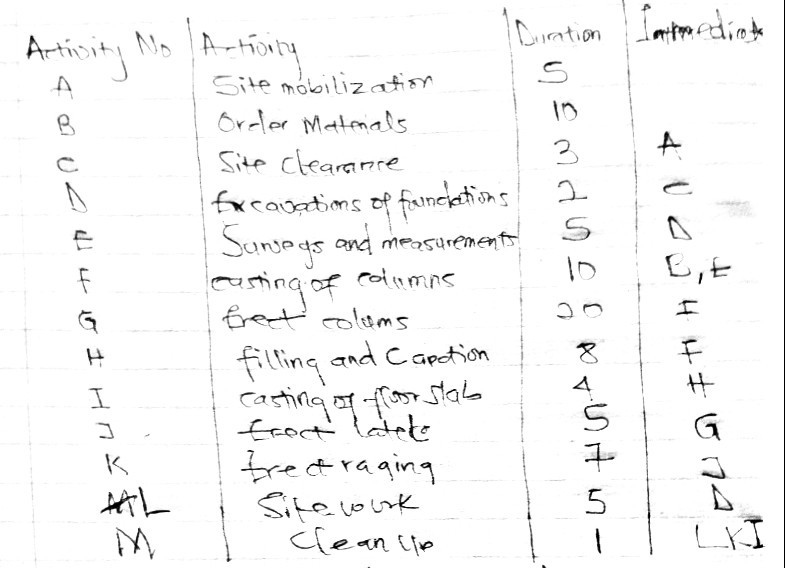 Activity No Activity Duration Immediate
A Site mobilization 5
B Order Materials 10
C Site Clearance 3 A
D Excavations of foundations 2 C
E Surveys and measurements 5 D
F casting of columns 10 B, E
G Erect colums 20 I
H filling and 8 F
I casting of floor slab 4 H
J Erect 5 G
K Erect raging 7 J
L Site work 5 D
M Clean up 1 LKI